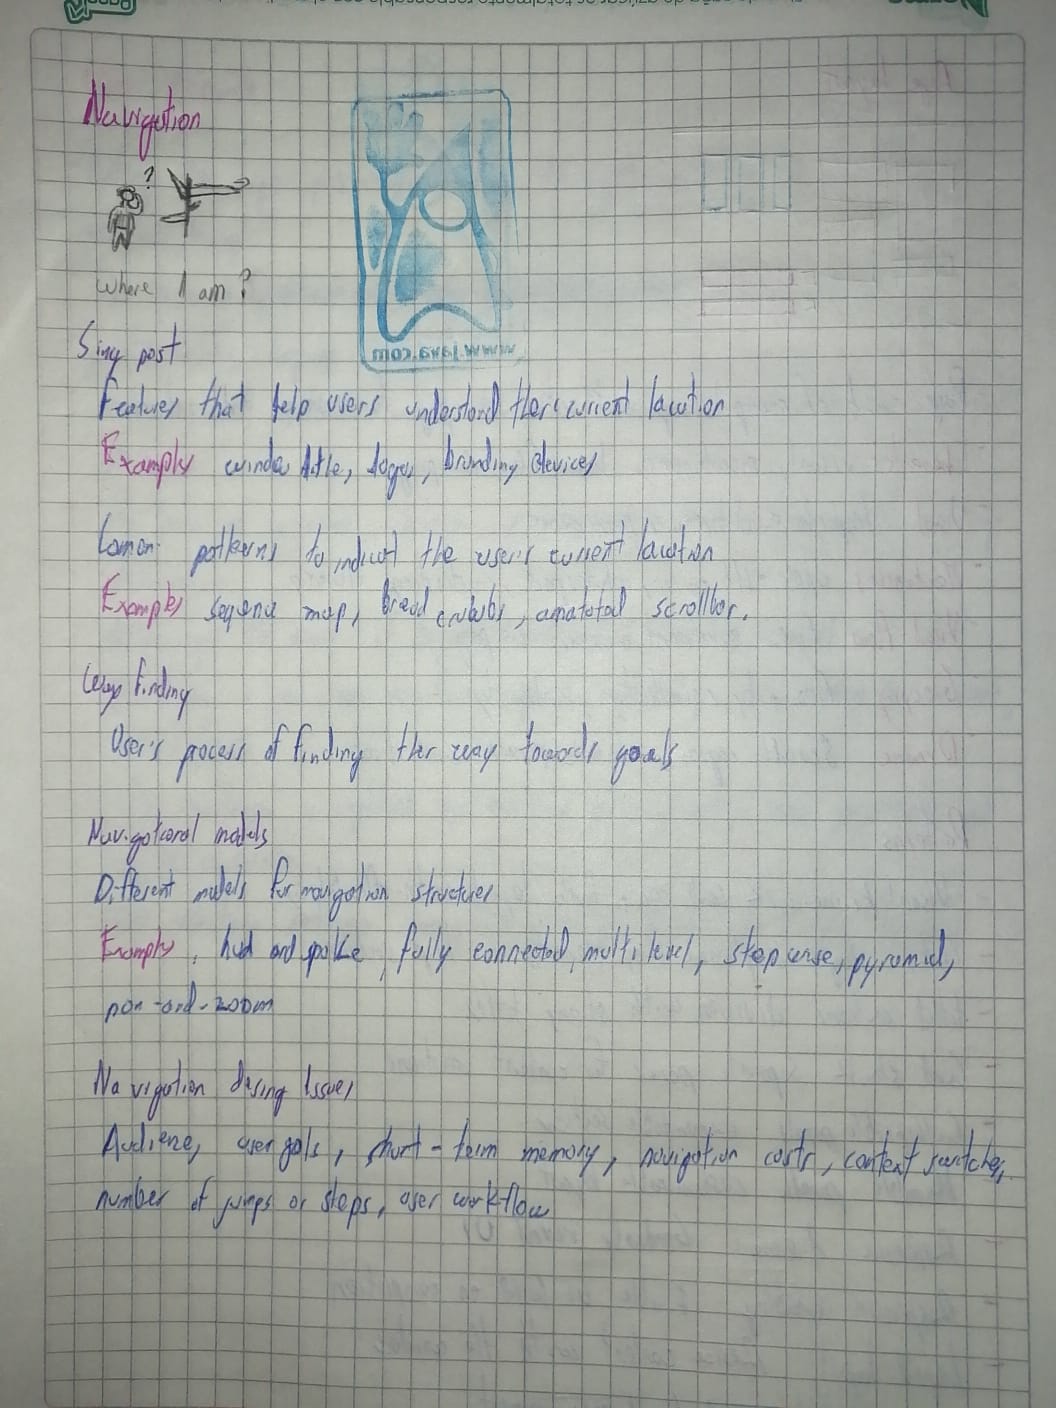 Navigation
?
where I am?
Sing post
Features that help users understand their current location
Examples window title, logos, branding devices
Comon patterns to indicat the user's current location
Examples sequence map, bread crububs, anatotad scrollbar.
Way finding
User's process of finding ther way towards goals
Navigational models
Different models for navigation structures
Examples, hud and spoke, fully connected, multilevel, stepwise, pyramid,
pan-and-zoom
Navigation desing Issues
Audience, user goals, short-term memory, navigation costs, context switches,
number of jumps or steps, user workflow
www.java.com